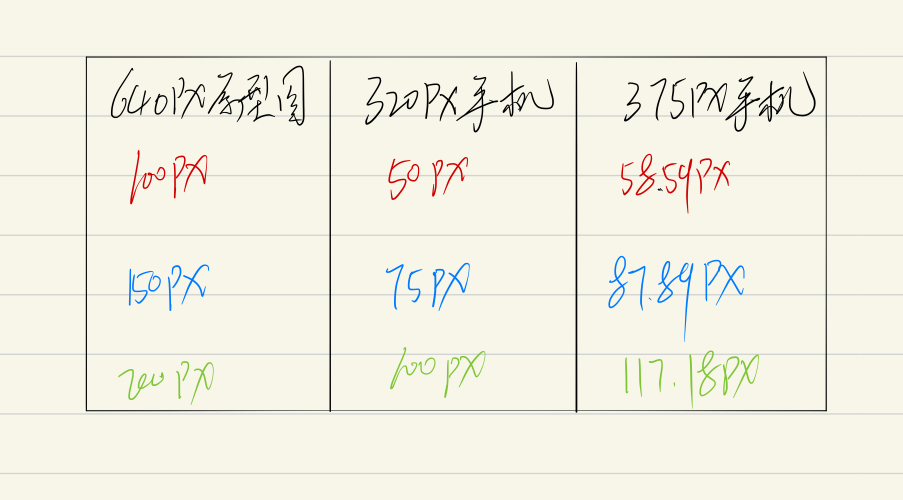 640PX原型图 320PX手机 375PX手机
100PX 50PX 58.59PX
150PX 75PX 87.89PX
200PX 100PX 117.18PX